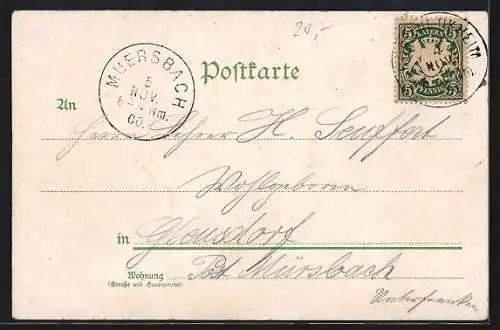 20,-
BAYERN
5 5
PFENNIG
MUERSBACH
5
NOV.
Nm.
00.
Postkarte
An
Herrn Lehrer H. Seuffert
Wohlgeboren
in Gleusdorf
Wohnung
(Straße und Hausnummer)
Post Mürsbach
Unterfranken